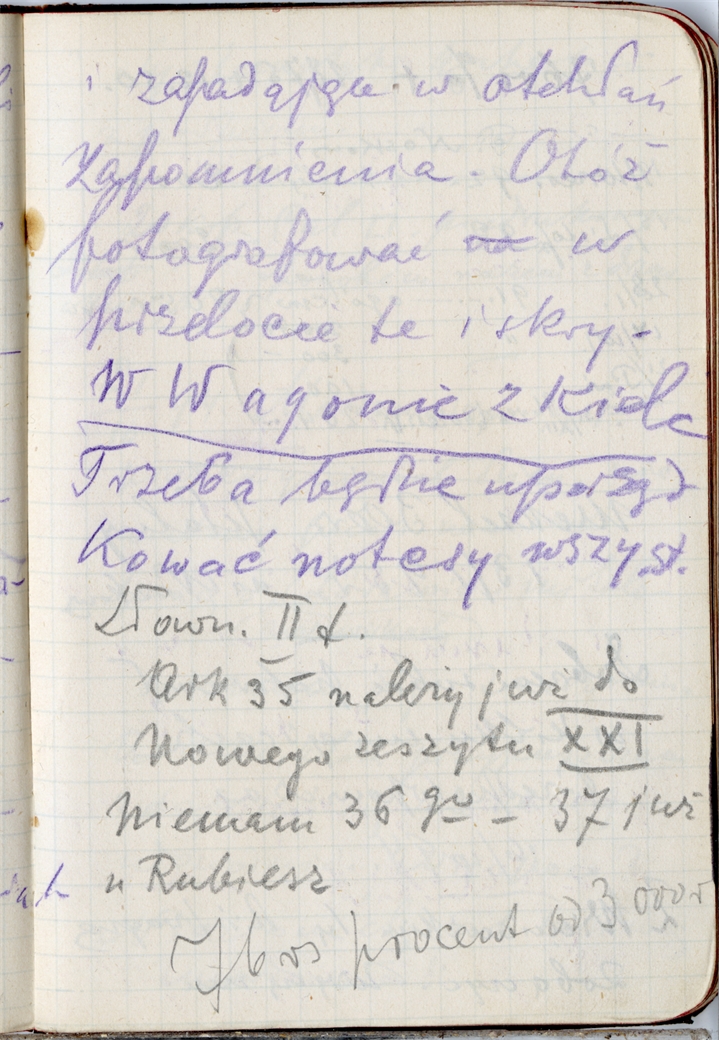 i zapadające w otchłań
Zapomnienia. Otóż
fotografować na w
przelocie te iskry-
W Wagonie z Kielc
Trzeba będzie uporząd
Kować notesy wszyst.
Słown. II t.
Ark 35 należy już do
Nowego zeszytu XXI
niemam 36 go - 37 już
u Rubiesz
procent od 3 000 r